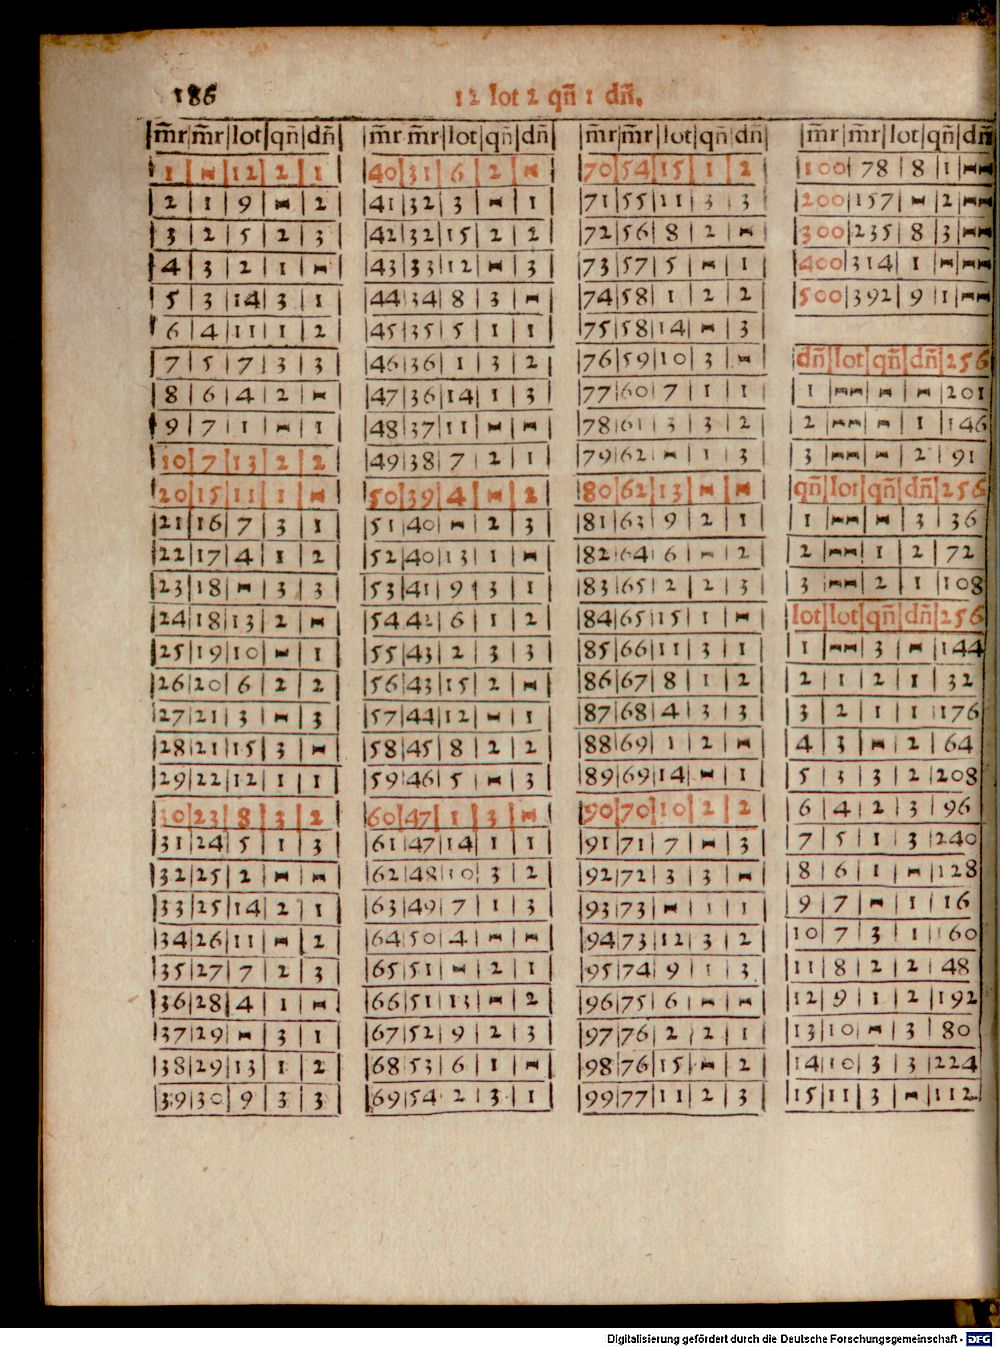 186
12 lot 2 qñ 1 dñ.
m̃r|m̃r|lot|qñ|dñ
1|-|12|2|1
2|1|9|-|2
3|2|5|2|3
4|3|2|1|-
5|3|14|3|1
6|4|11|1|2
7|5|7|3|3
8|6|4|2|-
9|7|1|-|1
10|7|13|2|2
20|15|11|1|-
21|16|7|3|1
22|17|4|1|2
23|18|-|3|3
24|18|13|2|-
25|19|10|-|1
26|20|6|2|2
27|21|3|-|3
28|21|15|3|-
29|22|12|1|1
30|23|8|3|2
31|24|5|1|3
32|25|2|-|-
33|25|14|2|1
34|26|11|-|2
35|27|7|2|3
36|28|4|1|-
37|29|-|3|1
38|29|13|1|2
39|30|9|3|3
m̃r|m̃r|lot|qñ|dñ
40|31|6|2|-
41|32|3|-|1
42|32|15|2|2
43|33|12|-|3
44|34|8|3|-
45|35|5|1|1
46|36|1|3|2
47|36|14|1|3
48|37|11|-|-
49|38|7|2|1
50|39|4|-|2
51|40|-|2|3
52|40|13|1|-
53|41|9|3|1
54|42|6|1|2
55|43|2|3|3
56|43|15|2|-
57|44|12|-|1
58|45|8|2|2
59|46|5|-|3
60|47|1|3|-
61|47|14|1|1
62|48|10|3|2
63|49|7|1|3
64|50|4|-|-
65|51|-|2|1
66|51|13|-|2
67|52|9|2|3
68|53|6|1|-
69|54|2|3|1
m̃r|m̃r|lot|qñ|dñ
70|54|15|1|2
71|55|11|3|3
72|56|8|2|-
73|57|5|-|1
74|58|1|2|2
75|58|14|-|3
76|59|10|3|-
77|60|7|1|1
78|61|3|3|2
79|62|-|1|3
80|62|13|-|-
81|63|9|2|1
82|64|6|-|2
83|65|2|2|3
84|65|15|1|-
85|66|11|3|1
86|67|8|1|2
87|68|4|3|3
88|69|1|2|-
89|69|14|-|1
90|70|10|2|2
91|71|7|-|3
92|72|3|3|-
93|73|-|1|1
94|73|12|3|2
95|74|9|1|3
96|75|6|-|-
97|76|2|2|1
98|76|15|-|2
99|77|11|2|3
m̃r|m̃r|lot|qñ|dñ
100|78|8|1|--
200|157|-|2|--
300|235|8|3|--
400|314|1|-|--
500|392|9|1|--
dñ|lot|qñ|dñ|256
1|--|-|-|201
2|--|-|1|146
3|--|-|2|91
qñ|lot|qñ|dñ|256
1|--|-|3|36
2|--|1|2|72
3|--|2|1|108
lot|lot|qñ|dñ|256
1|--|3|-|144
2|1|2|1|32
3|2|1|1|176
4|3|-|2|64
5|3|3|2|208
6|4|2|3|96
7|5|1|3|240
8|6|1|-|128
9|7|-|1|16
10|7|3|1|160
11|8|2|2|48
12|9|1|2|192
13|10|-|3|80
14|10|3|3|224
15|11|3|-|112
Digitalisierung gefördert durch die Deutsche Forschungsgemeinschaft - DFG